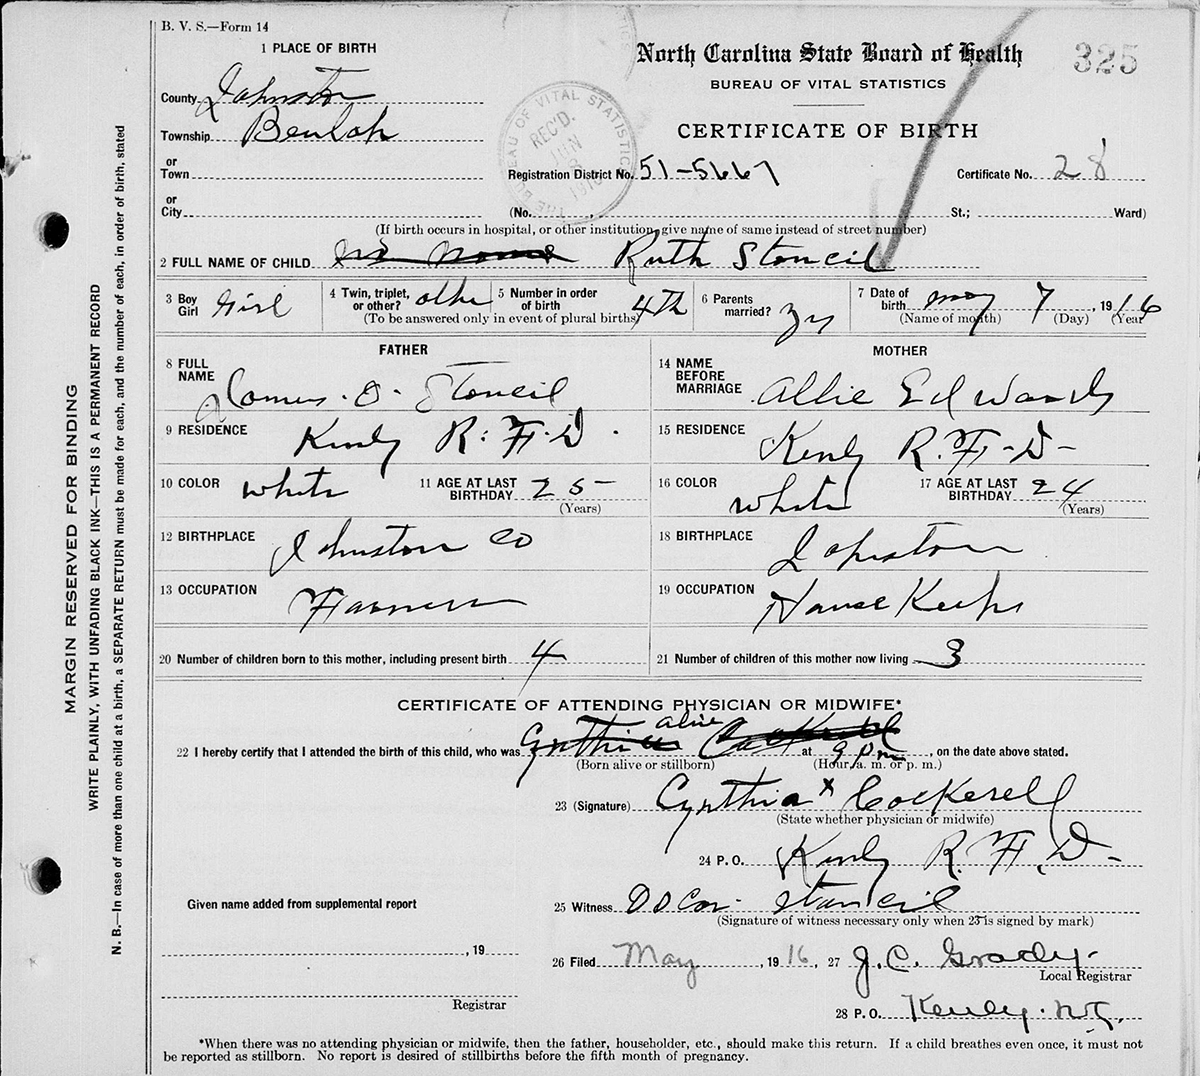 B. V. S.—Form 14
1 PLACE OF BIRTH
North Carolina State Board of Health
325
BUREAU OF VITAL STATISTICS
County Johnston
Township Beulah
CERTIFICATE OF BIRTH
THE BUREAU OF VITAL STATISTICS
REC'D.
JUN
8
or
Town
Registration District No. 51-5667
Certificate No. 28
or
City
(No. , St.; Ward)
(If birth occurs in hospital, or other institution, give name of same instead of street number)
2 FULL NAME OF CHILD no name Ruth Stancil
3 Boy Girl Girl
4 Twin, triplet, or other? othe
5 Number in order of birth 4th
(To be answered only in event of plural births)
6 Parents married? yes
7 Date of birth May 7, 1916
(Name of month) (Day) (Year)
FATHER
MOTHER
8 FULL NAME O. Stancil
14 NAME BEFORE MARRIAGE Allie Edwards
9 RESIDENCE Kenly R.F.D.
15 RESIDENCE Kenly R.F.D-
10 COLOR white
11 AGE AT LAST BIRTHDAY 25
(Years)
16 COLOR white
17 AGE AT LAST BIRTHDAY 24
(Years)
12 BIRTHPLACE Johnston Co
18 BIRTHPLACE Johnston
13 OCCUPATION Farmer
19 OCCUPATION House Keeper
20 Number of children born to this mother, including present birth 4
21 Number of children of this mother now living 3
CERTIFICATE OF ATTENDING PHYSICIAN OR MIDWIFE*
22 I hereby certify that I attended the birth of this child, who was Cynthia alive Cockerell at 9 pm, on the date above stated.
(Born alive or stillborn) (Hour, a. m. or p. m.)
23 (Signature) Cynthia x Cockerell
(State whether physician or midwife)
24 P. O. Kenly R.F.D-
Given name added from supplemental report
25 Witness Stancil
(Signature of witness necessary only when 23 is signed by mark)
, 19
26 Filed May, 1916, 27 J.C. Grady
Local Registrar
Registrar
28 P. O. Kenly N.C.
*When there was no attending physician or midwife, then the father, householder, etc., should make this return. If a child breathes even once, it must not
be reported as stillborn. No report is desired of stillbirths before the fifth month of pregnancy.
MARGIN RESERVED FOR BINDING
WRITE PLAINLY, WITH UNFADING BLACK INK—THIS IS A PERMANENT RECORD
N. B.—In case of more than one child at a birth, a SEPARATE RETURN must be made for each, and the number of each, in order of birth, stated